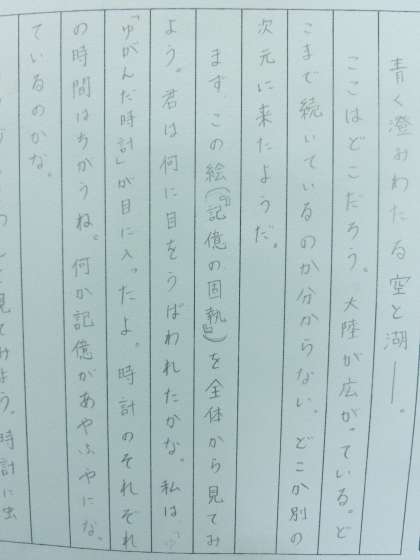 青く澄みわたる空と湖――。
ここはどこだろう。大陸が広がっている。ど
こまで続いているのか分からない。どこか別の
次元に来たようだ。
まず、この絵(『記億の固執』)を全体から見てみ
よう。君は何に目をうばわれたかな。私は、
「ゆがんだ時計」が目に入ったよ。時計のそれぞれ
の時間はちがうね。何か記億があやふやにな
ているのかな。
見てみよう。時計に虫